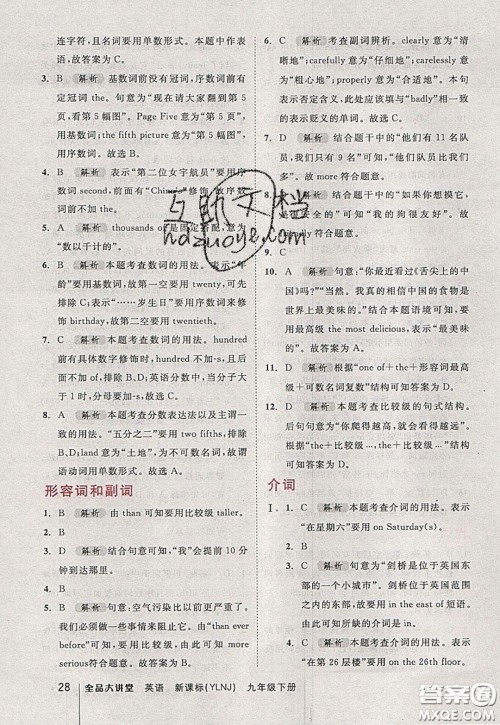 连字符，且名词要用单数形式。本题中作表
语，故答案为 A。
3. B 解析 基数词前没有冠词，序数词前一
定要用冠词 the。句意为“现在请大家翻到第 5
页，看第 5 幅图”。Page Five 意为“第 5 页”，
用基数词；the fifth picture 意为“第 5 幅图”，
用序数词。故选 B。
4. B 解析 表示“第二位女宇航员”要用序
数词 second，前面有“ 修饰，故序数
词前不用 the。
5. A 解析 thousands of 是固定搭配，意为
“数以千计的”。
6. B 解析 本题考查数词的用法。表示“年
龄”要用基数词，故第一空要用 twenty，可先
排除 C、D；表示“……岁生日”要用序数词来
修饰 birthday，故第二空要用 twentieth。
7. C 解析 本题考查数词的用法。hundred
前有具体数字修饰时，hundred 不加-s，且后
面不加 of，排除 B、D。英语分数中，当分子大
于 1 时，分母要加-s，排除 A。故答案为 C。
8. A 解析 本题考查分数表达法以及主谓一
致的用法。“五分之二”要用 two fifths，排除
B、D；land 意为“土地”，为不可数名词，故谓
语动词用单数形式。故选 A。
形容词和副词
1. B 解析 由 than 可知要用比较级 taller。
2. B
3. B
4. B 解析 结合句意可知，“我”提前了 10 分
钟到达那里。
5. B 解析 句意：空气污染比以前更严重了。
我们必须做一些事情来阻止它。由“than ever
before”可知，要用比较级，排除 A、D。根据句
意，可知答案为 B。
6. B 解析 考查副词辨析。clearly 意为“清晰
地”；carefully 意为“仔细地”；carelessly 意为
“粗心地”；properly 意为“合适地”。本句意为
表示否定含义，故填与后面的“badly”相对应
的表示贬义的单词。故选 C。
7. D 解析 结合题干中的“他们有 11 名队
员，我们只有 9 名”可知，“他们队比我们多
人”。故 more 符合题意。
8. 解析 结合题干中的“如果你想摸它，
是很安全的”可知“我的狗很友好”。故
friendly 符合题意。
9. B
10. A 解析 句意：“你最近看过《舌尖上的中
国》吗？”“当然。我相信中国的食物是
世界上最美味的。”结合本题语境可知应
用最高级。the most delicious，表示“最美味
的”。故答案为 A。
11. A 解析 根据“one of+the+形容词最高
级+可数名词复数”结构可知答案为 A。
12. B 解析 本题考查比较级的句式结构。
句意为“你爬得越高，就能玩得越远”。根据
“the＋比较级…，the＋比较级…”结构可知
答案为 B。
介词
Ⅰ. 1. C 解析 本题考查介词的用法。
“在星期六”要用 on Saturday(s)。
2. B
3. C 解析 本题考查介词的用法。
句意为“剑桥是位于英国东部
的一个小城市”。剑桥在英国范围
之内，故应用 in the east of 短语，由
此可知所缺的介词应为 in。
4. D 解析 本题考查介词的用法。表示“在
第 26 层楼”要用 on the 26th floor。
28 全品大讲堂 英语 新课标(YLNJ) 九年级下册
互助文档
hdzuoye.com
答案圈
MXQE.COM